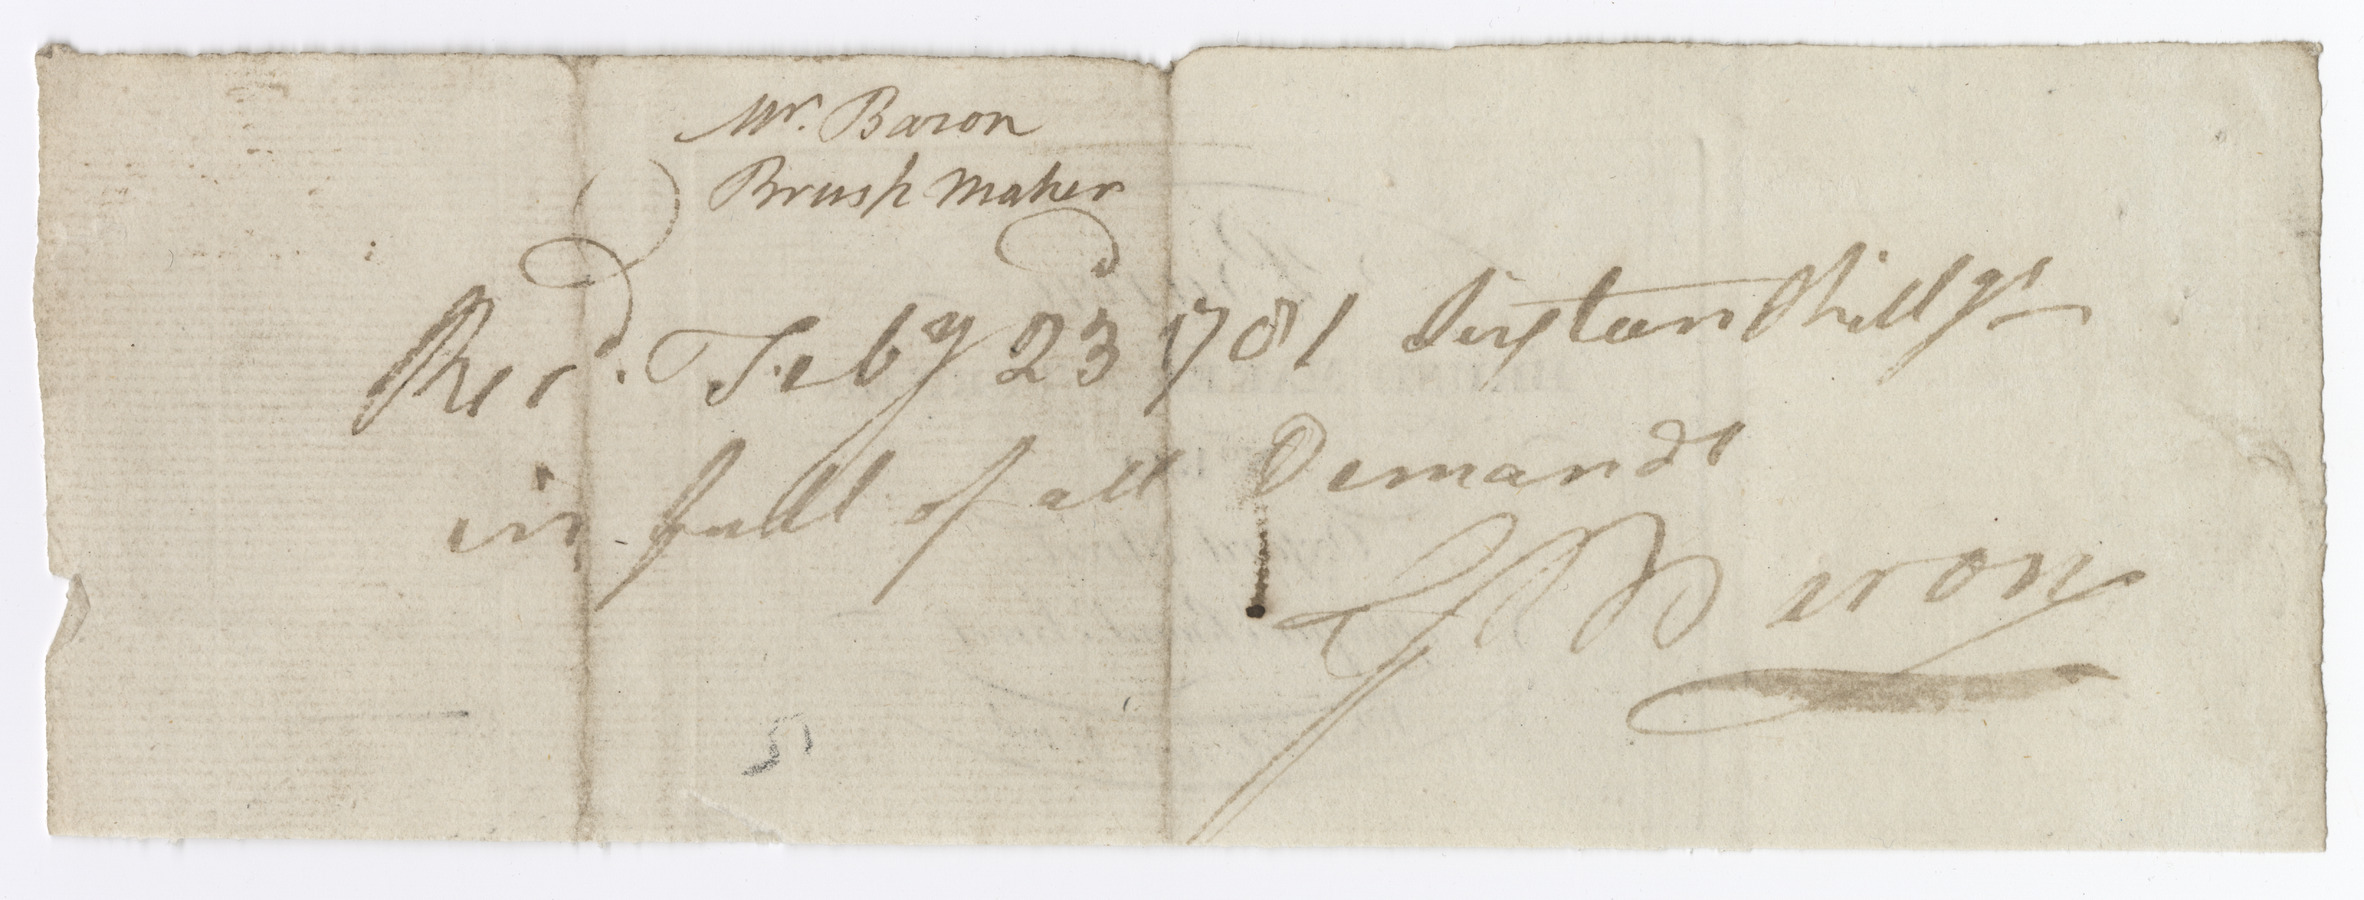 Mr. Baron
Brush Maker
Recd. Feby 23d 1781 Sixteen Shillgs
in full of all Demands
J Baron